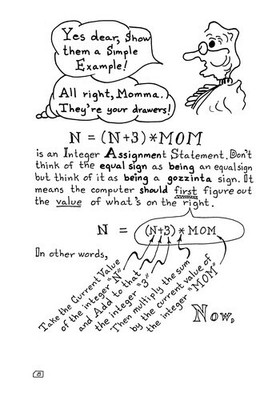 Yes dear, show
them a Simple
Example!
All right, Momma..
They're your drawers!
N = (N+3)*MOM
is an Integer Assignment Statement. Don't
think of the equal sign as being an equal sign
but think of it as being a gozzinta sign. It
means the computer should first figure out
the value of what's on the right.
N = (N+3) * MOM
In other words,
Take the Current Value
of the integer "N"
and Add to that
the integer "3"
Then multiply the sum
by the current value of
the integer "MOM"
Now,